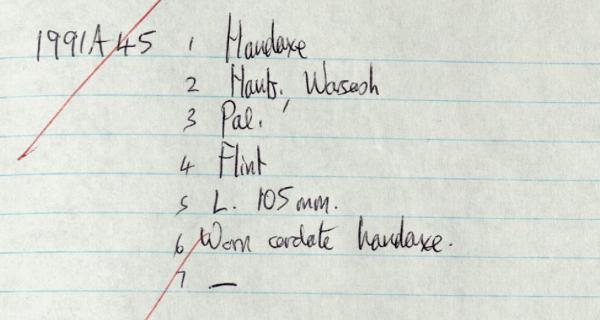 1991A45 1 Handaxe
2 Hants. Warsash
3 Pal.
4 Flint
5 L. 105mm.
6 Worn cordate handaxe.
7 —